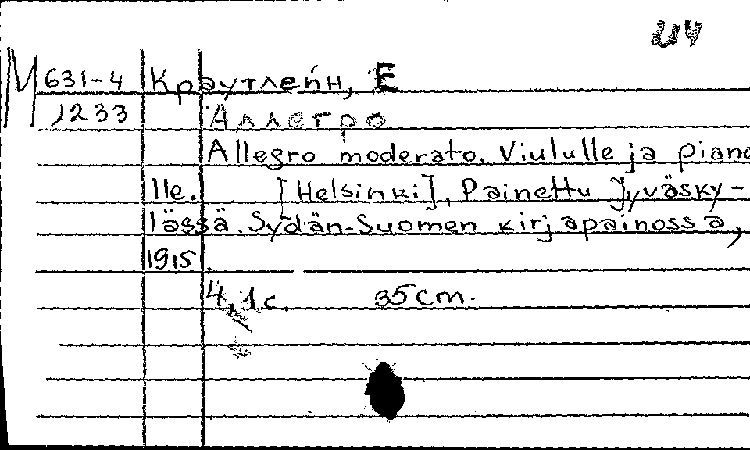 М 631-4 Краутлейн, Е
1233 Аллегро
Allegro moderato. Viululle ja piano
lle. [Helsinki], Painettu Jyväsky-
lässä. Sydän-Suomen kirjapainossa,
1915.
4,1 с. 35 cm.